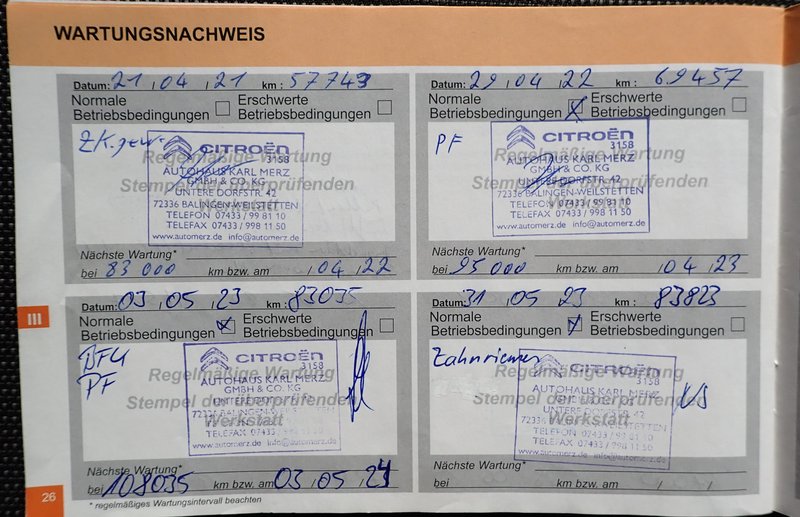 WARTUNGSNACHWEIS
Datum: 21 / 04 / 21 km: 57743
Normale Betriebsbedingungen Erschwerte Betriebsbedingungen
Regelmäßige Wartung
Stempel der überprüfenden
CITROËN
3158
AUTOHAUS KARL MERZ
GMBH & CO. KG
UNTERE DORFSTR. 42
72336 BALINGEN-WEILSTETTEN
TELEFON 07433 / 99 81 10
TELEFAX 07433 / 998 11 50
www.automerz.de info@automerz.de
Nächste Wartung*
bei 83 000 km bzw. am / 04 / 22
Datum: 29 / 04 / 22 km: 69457
Normale Betriebsbedingungen Erschwerte Betriebsbedingungen
PF
Regelmäßige Wartung
Stempel der überprüfenden
CITROËN
3158
AUTOHAUS KARL MERZ
GMBH & CO. KG
UNTERE DORFSTR. 42
72336 BALINGEN-WEILSTETTEN
TELEFON 07433 / 99 81 10
TELEFAX 07433 / 998 11 50
www.automerz.de info@automerz.de
Nächste Wartung*
bei 95000 km bzw. am / 04 / 23
III
Datum: 03 / 05 / 23 km: 83035
Normale Betriebsbedingungen Erschwerte Betriebsbedingungen
BFU
PF
Regelmäßige Wartung
Stempel der überprüfenden
Werkstatt
CITROËN
3158
AUTOHAUS KARL MERZ
GMBH & CO. KG
UNTERE DORFSTR. 42
72336 BALINGEN-WEILSTETTEN
TELEFON 07433 /
TELEFAX 07433 /
www.automerz.de info@automerz.de
Nächste Wartung*
bei 108035 km bzw. am 03 / 05 / 24
Datum: 31 / 05 / 23 km: 83823
Normale Betriebsbedingungen Erschwerte Betriebsbedingungen
Zahnriemen
Regelmäßige Wartung
Stempel der überprüfenden
Werkstatt
CITROËN
3158
AUTOHAUS KARL MERZ
GMBH & CO. KG
UNTERE DORFSTR. 42
72336 BALINGEN-WEILSTETTEN
TELEFON 07433 / 99 81 10
TELEFAX 07433 / 998 11 50
www.automerz.de info@automerz.de
Nächste Wartung*
bei km bzw. am / /
26
* regelmäßiges Wartungsintervall beachten